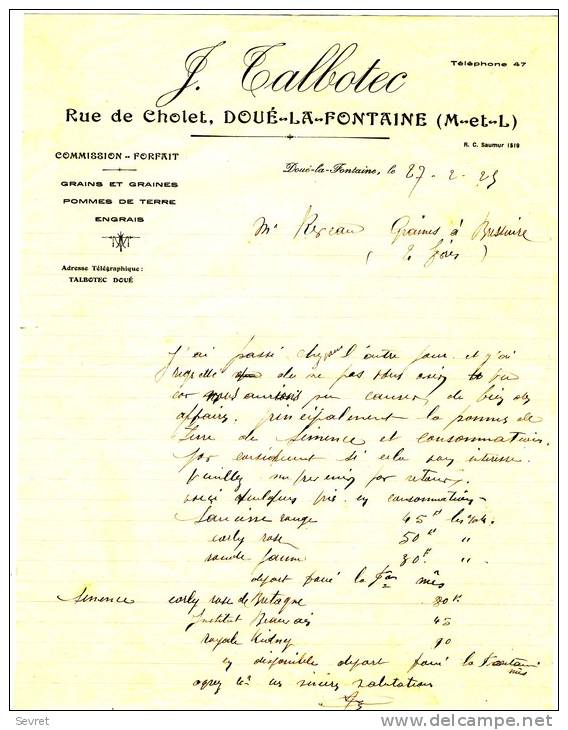 J. Talbotec
Téléphone 47
Rue de Cholet, DOUÉ-LA-FONTAINE (M-et-L)
R. C. Saumur 1519
COMMISSION - FORFAIT
GRAINS ET GRAINES
POMMES DE TERRE
ENGRAIS
Adresse Télégraphique :
TALBOTEC DOUÉ
Doué-la-Fontaine, le 27-2-25
Mr Graines à Bressuire
(2 Sèvres)
J'ai passé chez vous l'autre jour et j'ai
regretté de ne pas vous avoir vu
car nous aurions pu causer de bien des
affaires, principalement la pomme de
terre de semence et consommation.
par conséquent si cela vous intéresse
veuillez me prévenir par retour,
voici quelques prix en consommation -
Saucisse rouge 45 fr les %k.
early rose 50 fr "
ronde jaune 30 fr. "
départ pour la
Semence early rose de Bretagne 80 fr.
Institut Beauvais 45
royale Kidney 90
en disponible départ
agréez Mr mes sincères salutations
Sevret
delcampe.net